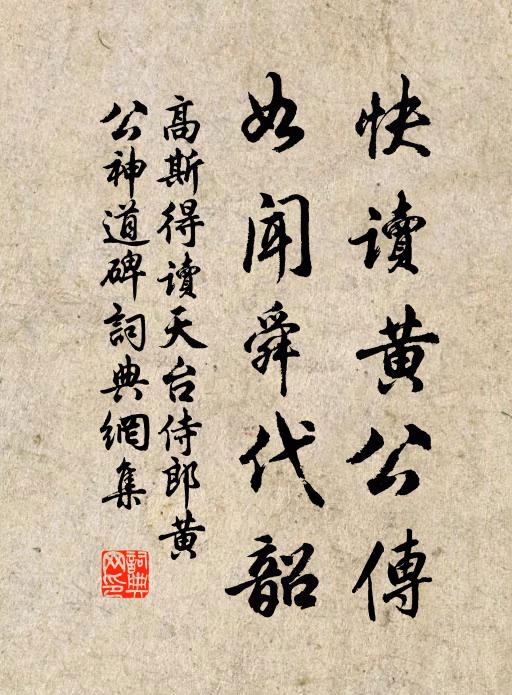 快讀黄公傳
如聞舜代韶
高斯得讀天台侍郎黄
公神道碑詞典網集
詞典网印